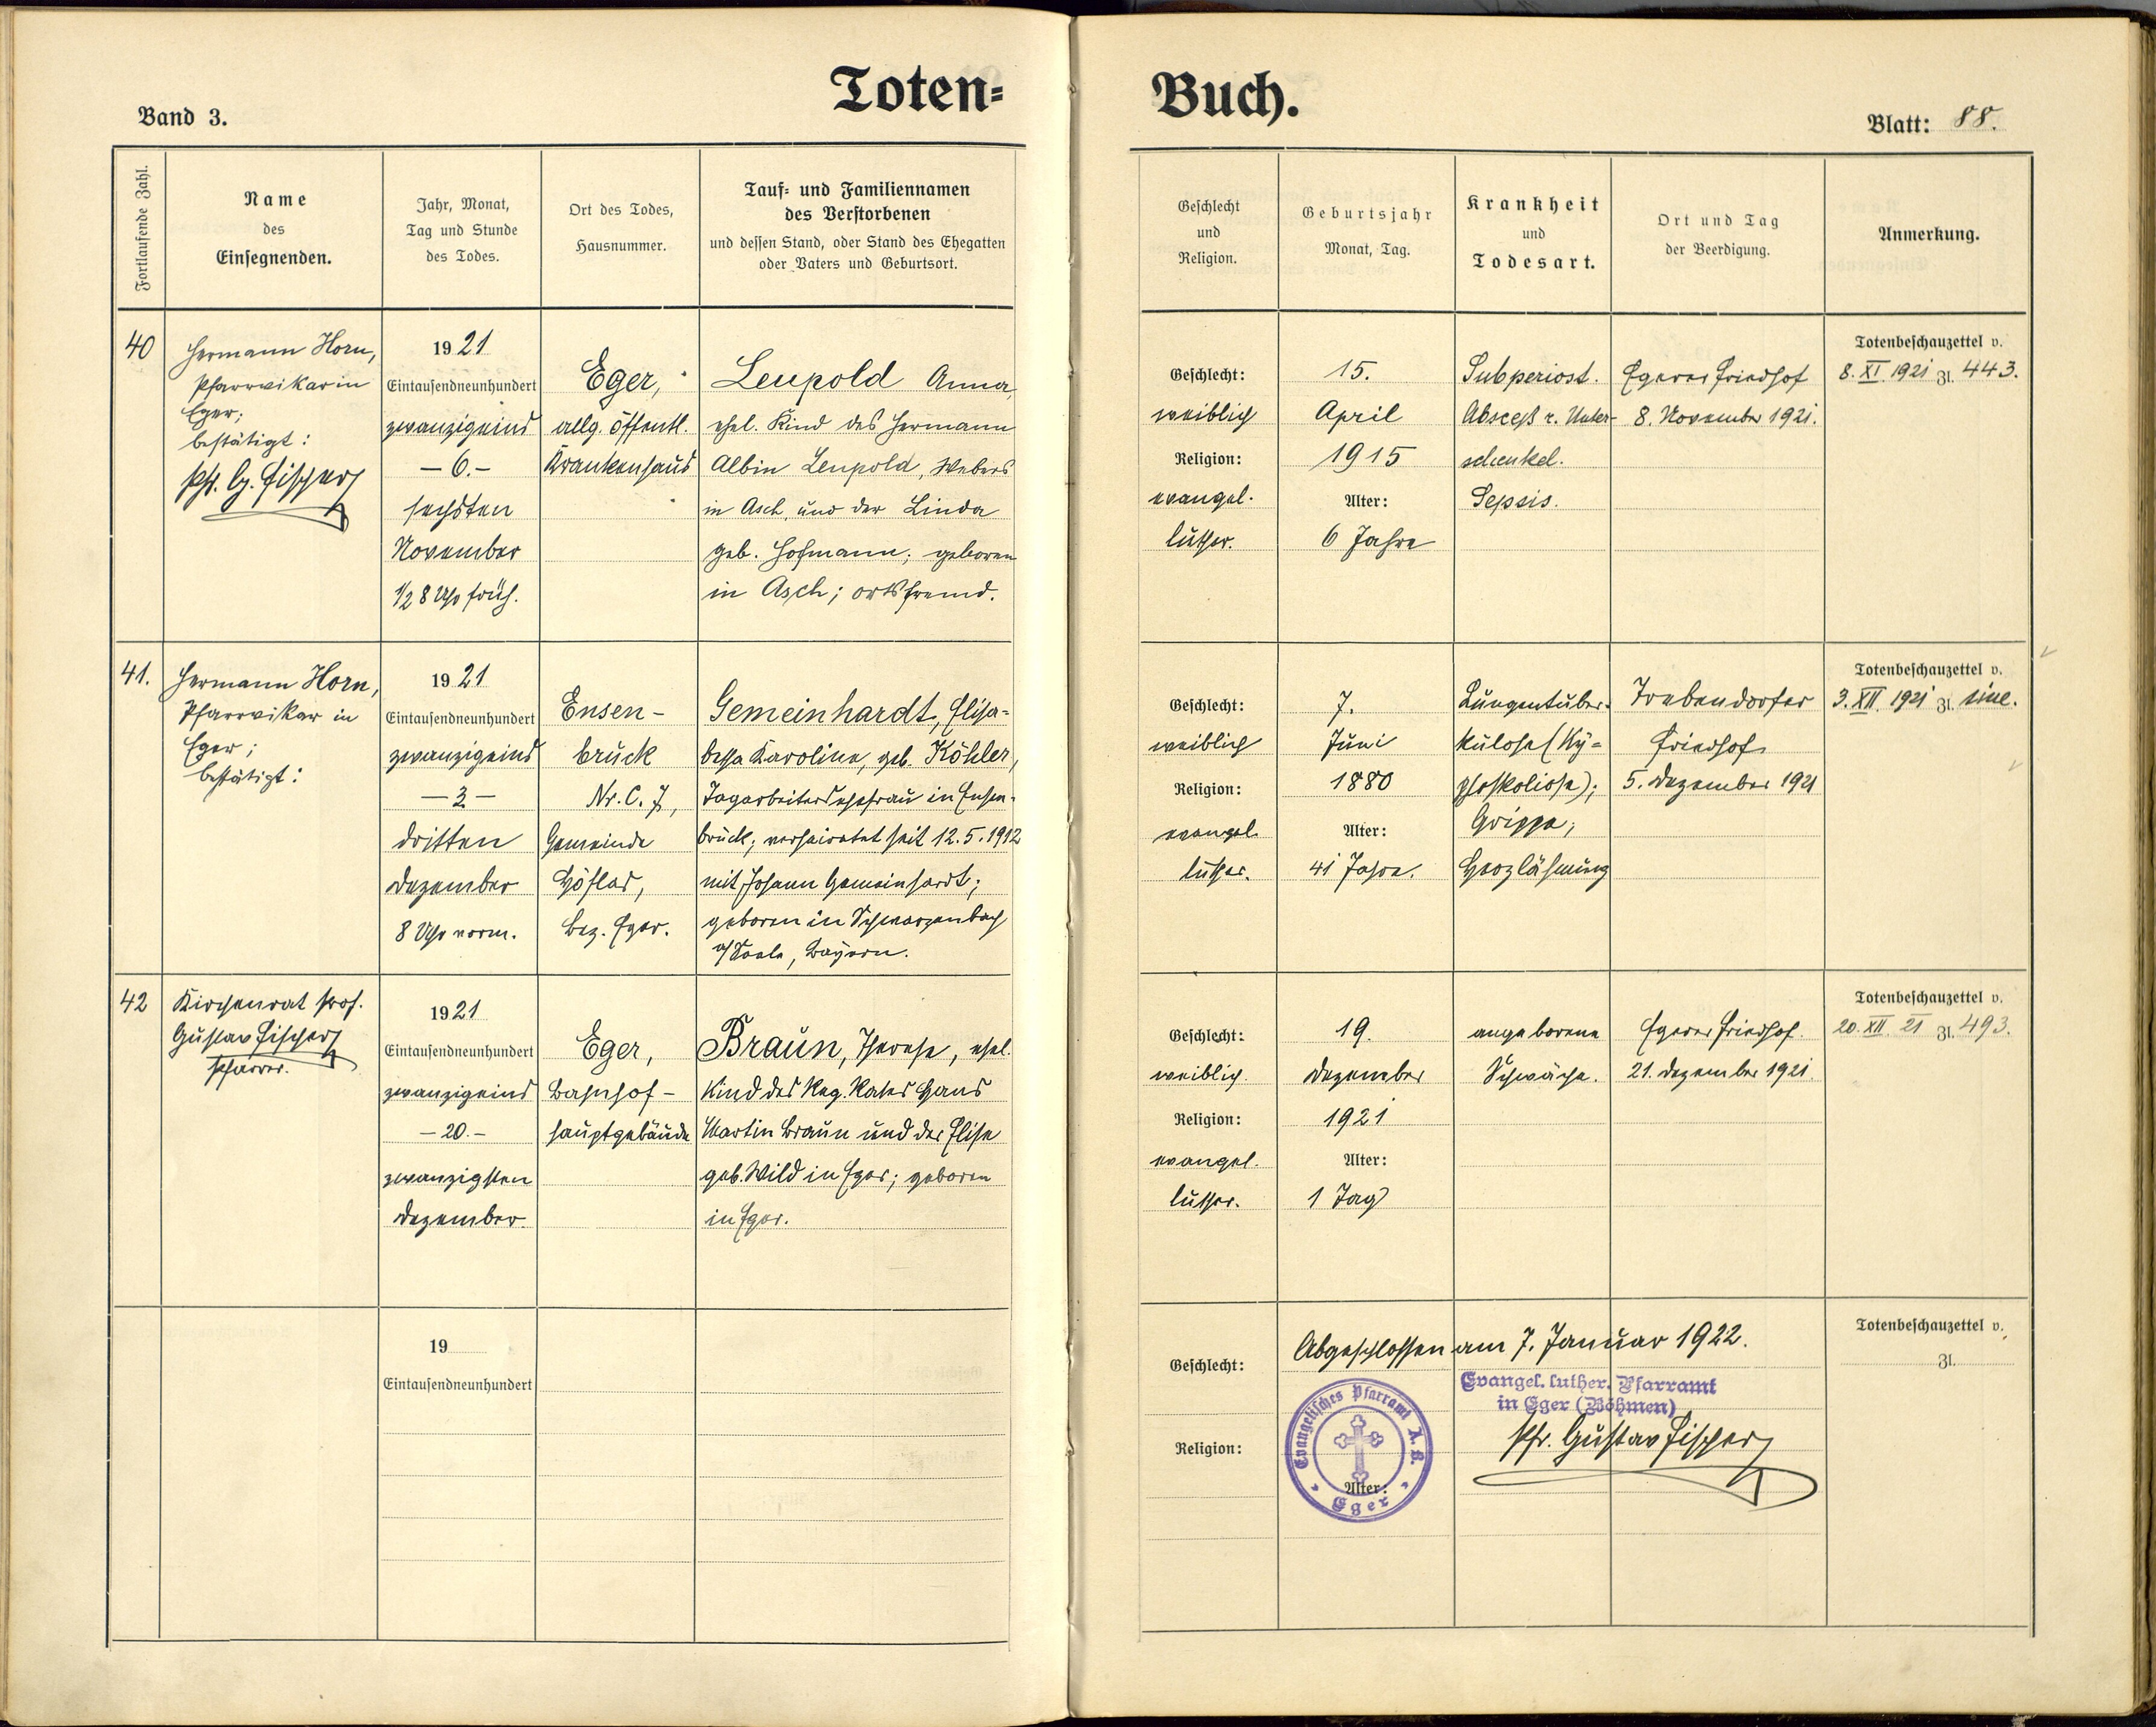 Toten=
Buch.
Band 3.
Blatt: 88.
Fortlaufende Zahl.
Name
des
Einsegnenden.
Jahr, Monat,
Tag und Stunde
des Todes.
Ort des Todes,
Hausnummer.
Tauf= und Familiennamen
des Verstorbenen
und dessen Stand, oder Stand des Ehegatten
oder Vaters und Geburtsort.
Geschlecht
und
Religion.
Geburtsjahr
Monat, Tag.
Krankheit
und
Todesart.
Ort und Tag
der Beerdigung.
Anmerkung.
40
Hermann Horn,
Pfarrvikar in
Eger;
bestätigt:
Pfr. G. Fischer
1921
Eintausendneunhundert
zwanzigeins
– 6. –
sechsten
November
1/2 8 Uhr früh.
Eger,
allg. öffentl.
Krankenhaus
Leupold Anna,
ehel. Kind des Hermann
Albin Leupold, Webers
in Asch, und der Linda
geb. Hofmann; geboren
in Asch; ortsfremd.
Geschlecht:
weiblich
Religion:
evangel.
luther.
15.
April
1915
Alter:
6 Jahre
Subperiost.
Absceß r. Unter-
schenkel.
Sepsis.
Egerer Friedhof
8. November 1921.
Totenbeschauzettel v.
8. XI. 1921 Zl. 443.
41.
Hermann Horn,
Pfarrvikar in
Eger;
bestätigt:
1921
Eintausendneunhundert
zwanzigeins
– 3 –
dritten
Dezember
8 Uhr vorm.
Ensen-
bruck
Nr. C. 7,
Gemeinde
Höflas,
Bez. Eger.
Gemeinhardt, Elisa-
betha Karoline, geb. Köhler,
Tagarbeitersehefrau in Ensen-
bruck; verheiratet seit 12.5.1912
mit Johann Gemeinhardt;
geboren in Schwarzenbach
a/Saale, Bayern.
Geschlecht:
weiblich
Religion:
evangel.
luther.
7.
Juni
1880
Alter:
41 Jahre.
Lungentuber-
kulose (Ky=
phoskoliose);
Grippe;
Herzlähmung
Trebendorfer
Friedhof
5. Dezember 1921
Totenbeschauzettel v.
3. XII. 1921 Zl. sine.
42
Kirchenrat Prof.
Gustav Fischer
Pfarrer.
1921
Eintausendneunhundert
zwanzigeins
– 20. –
zwanzigsten
Dezember.
Eger,
Bahnhof-
hauptgebäude
Braun, Therese, ehel.
Kind des Reg. Rates Hans
Martin Braun und der Elise
geb. Wild in Eger; geboren
in Eger.
Geschlecht:
weiblich.
Religion:
evangel.
luther.
19.
Dezember
1921
Alter:
1 Tag
angeborene
Schwäche.
Egerer Friedhof.
21. Dezember 1921.
Totenbeschauzettel v.
20. XII. 21 Zl. 493.
19
Eintausendneunhundert
Geschlecht:
Religion:
Abgeschlossen am 7. Januar 1922.
Evangel. luther. Pfarramt
in Eger (Böhmen)
Pfr. Gustav Fischer
Evangelisches Pfarramt A. B.
Eger
Alter:
Totenbeschauzettel v.
Zl.